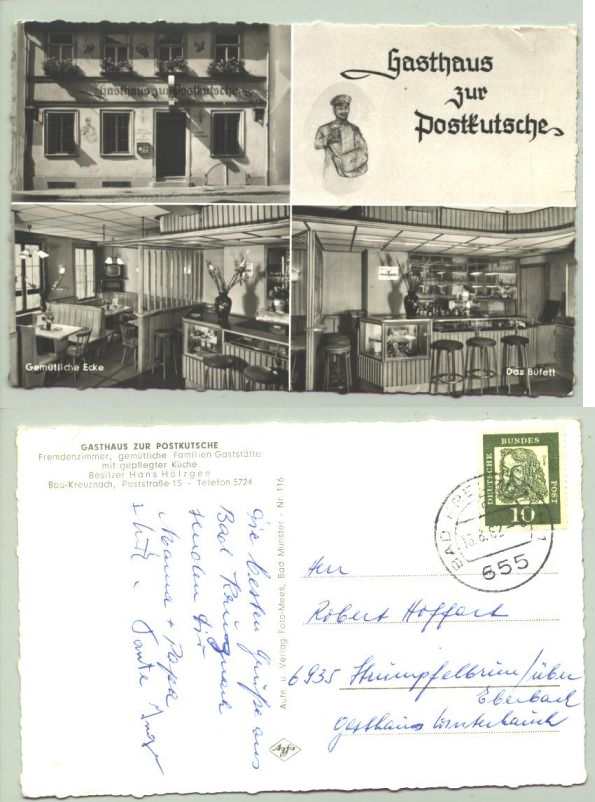 Gasthaus zur Postkutsche
Gasthaus
zur
Postkutsche
Gemütliche Ecke
Das Büfett
GASTHAUS ZUR POSTKUTSCHE
Fremdenzimmer, gemütliche Familien-Gaststätte
mit gepflegter Küche
Besitzer Hans Hölzgen
Bad-Kreuznach, Poststraße 15 - Telefon 5724
Die besten Grüße aus
Bad Kreuznach
senden Dir
Mama + Papa
Tante
Aufn. u. Verlag Foto-Meek, Bad Münster - Nr. 116
DEUTSCHE
BUNDES
POST
10
BAD
655
Herr
Robert Hoffart
6935 Strümpfelbrün/über
Eberbach
Gasthaus Winterhauch